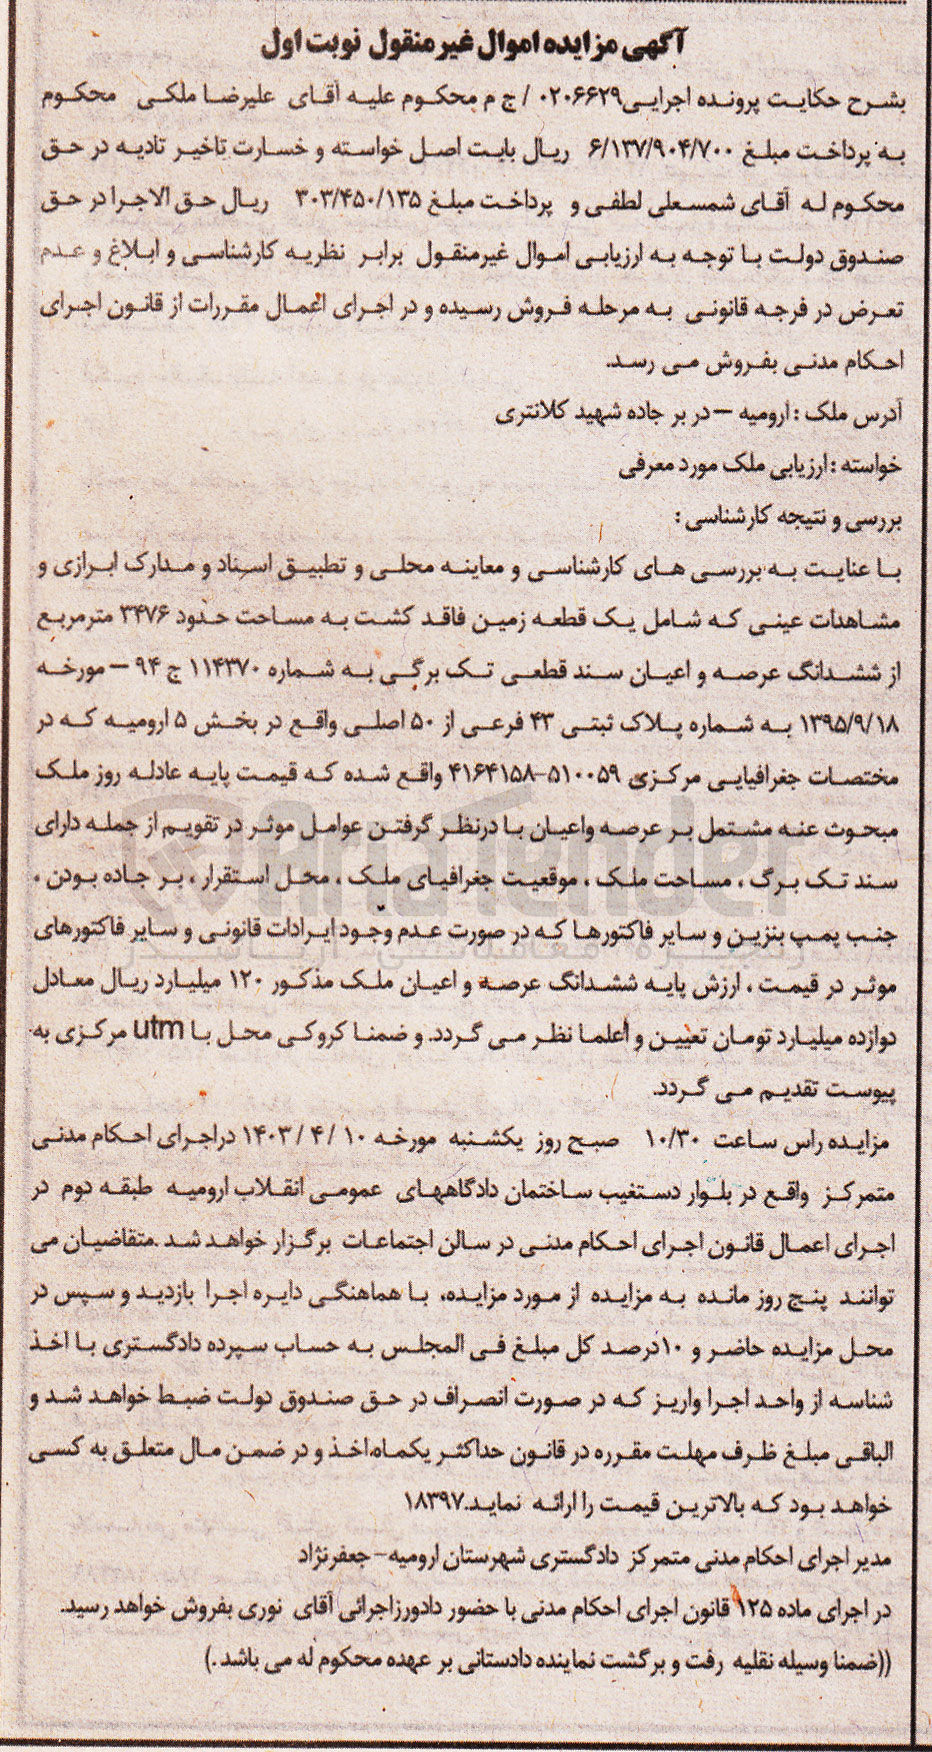 آگهی مزایده اموال غیر منقول نوبت اول
بشرح حکایت پرونده اجرایی۰۲۰۶۶۲۹ / ج م محکوم علیه آقای علیرضا ملکی محکوم
به پرداخت مبلغ ۶/۱۳۷/۹۰۴/۷۰۰ ریال بابت اصل خواسته و خسارت تاخیر تادیه در حق
محکوم له آقای شمسعلی لطفی و پرداخت مبلغ ۳۰۳/۴۵۰/۱۳۵ ریال حق الاجرا در حق
صندوق دولت با توجه به ارزیابی اموال غیرمنقول برابر نظریه کارشناسی و ابلاغ و عدم
تعرض در فرجه قانونی به مرحله فروش رسیده و در اجرای اعمال مقررات از قانون اجرای
احکام مدنی بفروش می رسد.
آدرس ملک : ارومیه – در بر جاده شهید کلانتری
خواسته : ارزیابی ملک مورد معرفی
بررسی و نتیجه کارشناسی :
با عنایت به بررسی های کارشناسی و معاینه محلی و تطبیق اسناد و مدارک ابرازی و
مشاهدات عینی که شامل یک قطعه زمین فاقد کشت به مساحت حدود ۳۴۷۶ مترمربع
از ششدانگ عرصه و اعیان سند قطعی تک برگی به شماره ۱۱۴۳۷۰ ج ۹۴ – مورخه
۱۳۹۵/۹/۱۸ به شماره پلاک ثبتی ۴۳ فرعی از ۵۰ اصلی واقع در بخش ۵ ارومیه که در
مختصات جغرافیایی مرکزی ۵۱۰۰۵۹-۴۱۶۴۱۵۸ واقع شده که قیمت پایه عادله روز ملک
مبحوث عنه مشتمل بر عرصه واعیان با درنظر گرفتن عوامل موثر در تقویم از جمله دارای
سند تک برگ ، مساحت ملک ، موقعیت جغرافیای ملک ، محل استقرار ، بر جاده بودن ،
جنب پمپ بنزین و سایر فاکتورها که در صورت عدم وجود ایرادات قانونی و سایر فاکتورهای
موثر در قیمت ، ارزش پایه ششدانگ عرصه و اعیان ملک مذکور ۱۲۰ میلیارد ریال معادل
دوازده میلیارد تومان تعیین و أعلما نظر می گردد. و ضمنا کروکی محل با utm مرکزی به
پیوست تقدیم می گردد.
مزایده راس ساعت ۱۰/۳۰ صبح روز یکشنبه مورخه ۱۰ / ۴ / ۱۴۰۳ دراجرای احکام مدنی
متمرکز واقع در بلوار دستغیب ساختمان دادگاههای عمومی انقلاب ارومیه طبقه دوم در
اجرای اعمال قانون اجرای احکام مدنی در سالن اجتماعات برگزار خواهد شد .متقاضیان می
توانند پنج روز مانده به مزایده از مورد مزایده، با هماهنگی دایره اجرا بازدید و سپس در
محل مزایده حاضر و ۱۰درصد کل مبلغ فی المجلس به حساب سپرده دادگستری با اخذ
شناسه از واحد اجرا واریز که در صورت انصراف در حق صندوق دولت ضبط خواهد شد و
الباقی مبلغ ظرف مهلت مقرره در قانون حداکثر یکماه،اخذ و در ضمن مال متعلق به کسی
خواهد بود که بالاترین قیمت را ارائه نماید.۱۸۳۹۷
مدیر اجرای احکام مدنی متمرکز دادگستری شهرستان ارومیه- جعفرنژاد
در اجرای ماده ۱۲۵ قانون اجرای احکام مدنی با حضور دادورزاجرائی آقای نوری بفروش خواهد رسید.
((ضمنا وسیله نقلیه رفت و برگشت نماینده دادستانی بر عهده محکوم له می باشد .)
AriaTender